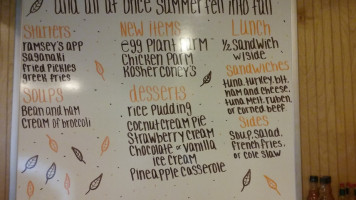 and all at once summer fell into fall
Starters
ramsey's app
Saganaki
fried Pickles
greek fries
Soups
Bean and ham
cream of broccoli
New Items
egg plant parm
Chicken Parm
Kosher Coney's
desserts
rice pudding
coconut cream pie
Strawberry cream
Chocolate or vanilla
ice cream
Pineapple casserole
Lunch
½ Sandwich
w/side
Sandwiches
tuna, turkey, blt,
ham and cheese,
tuna melt, ruben
or corned beef.
Sides
Soup, salad,
french fries,
or cole slaw